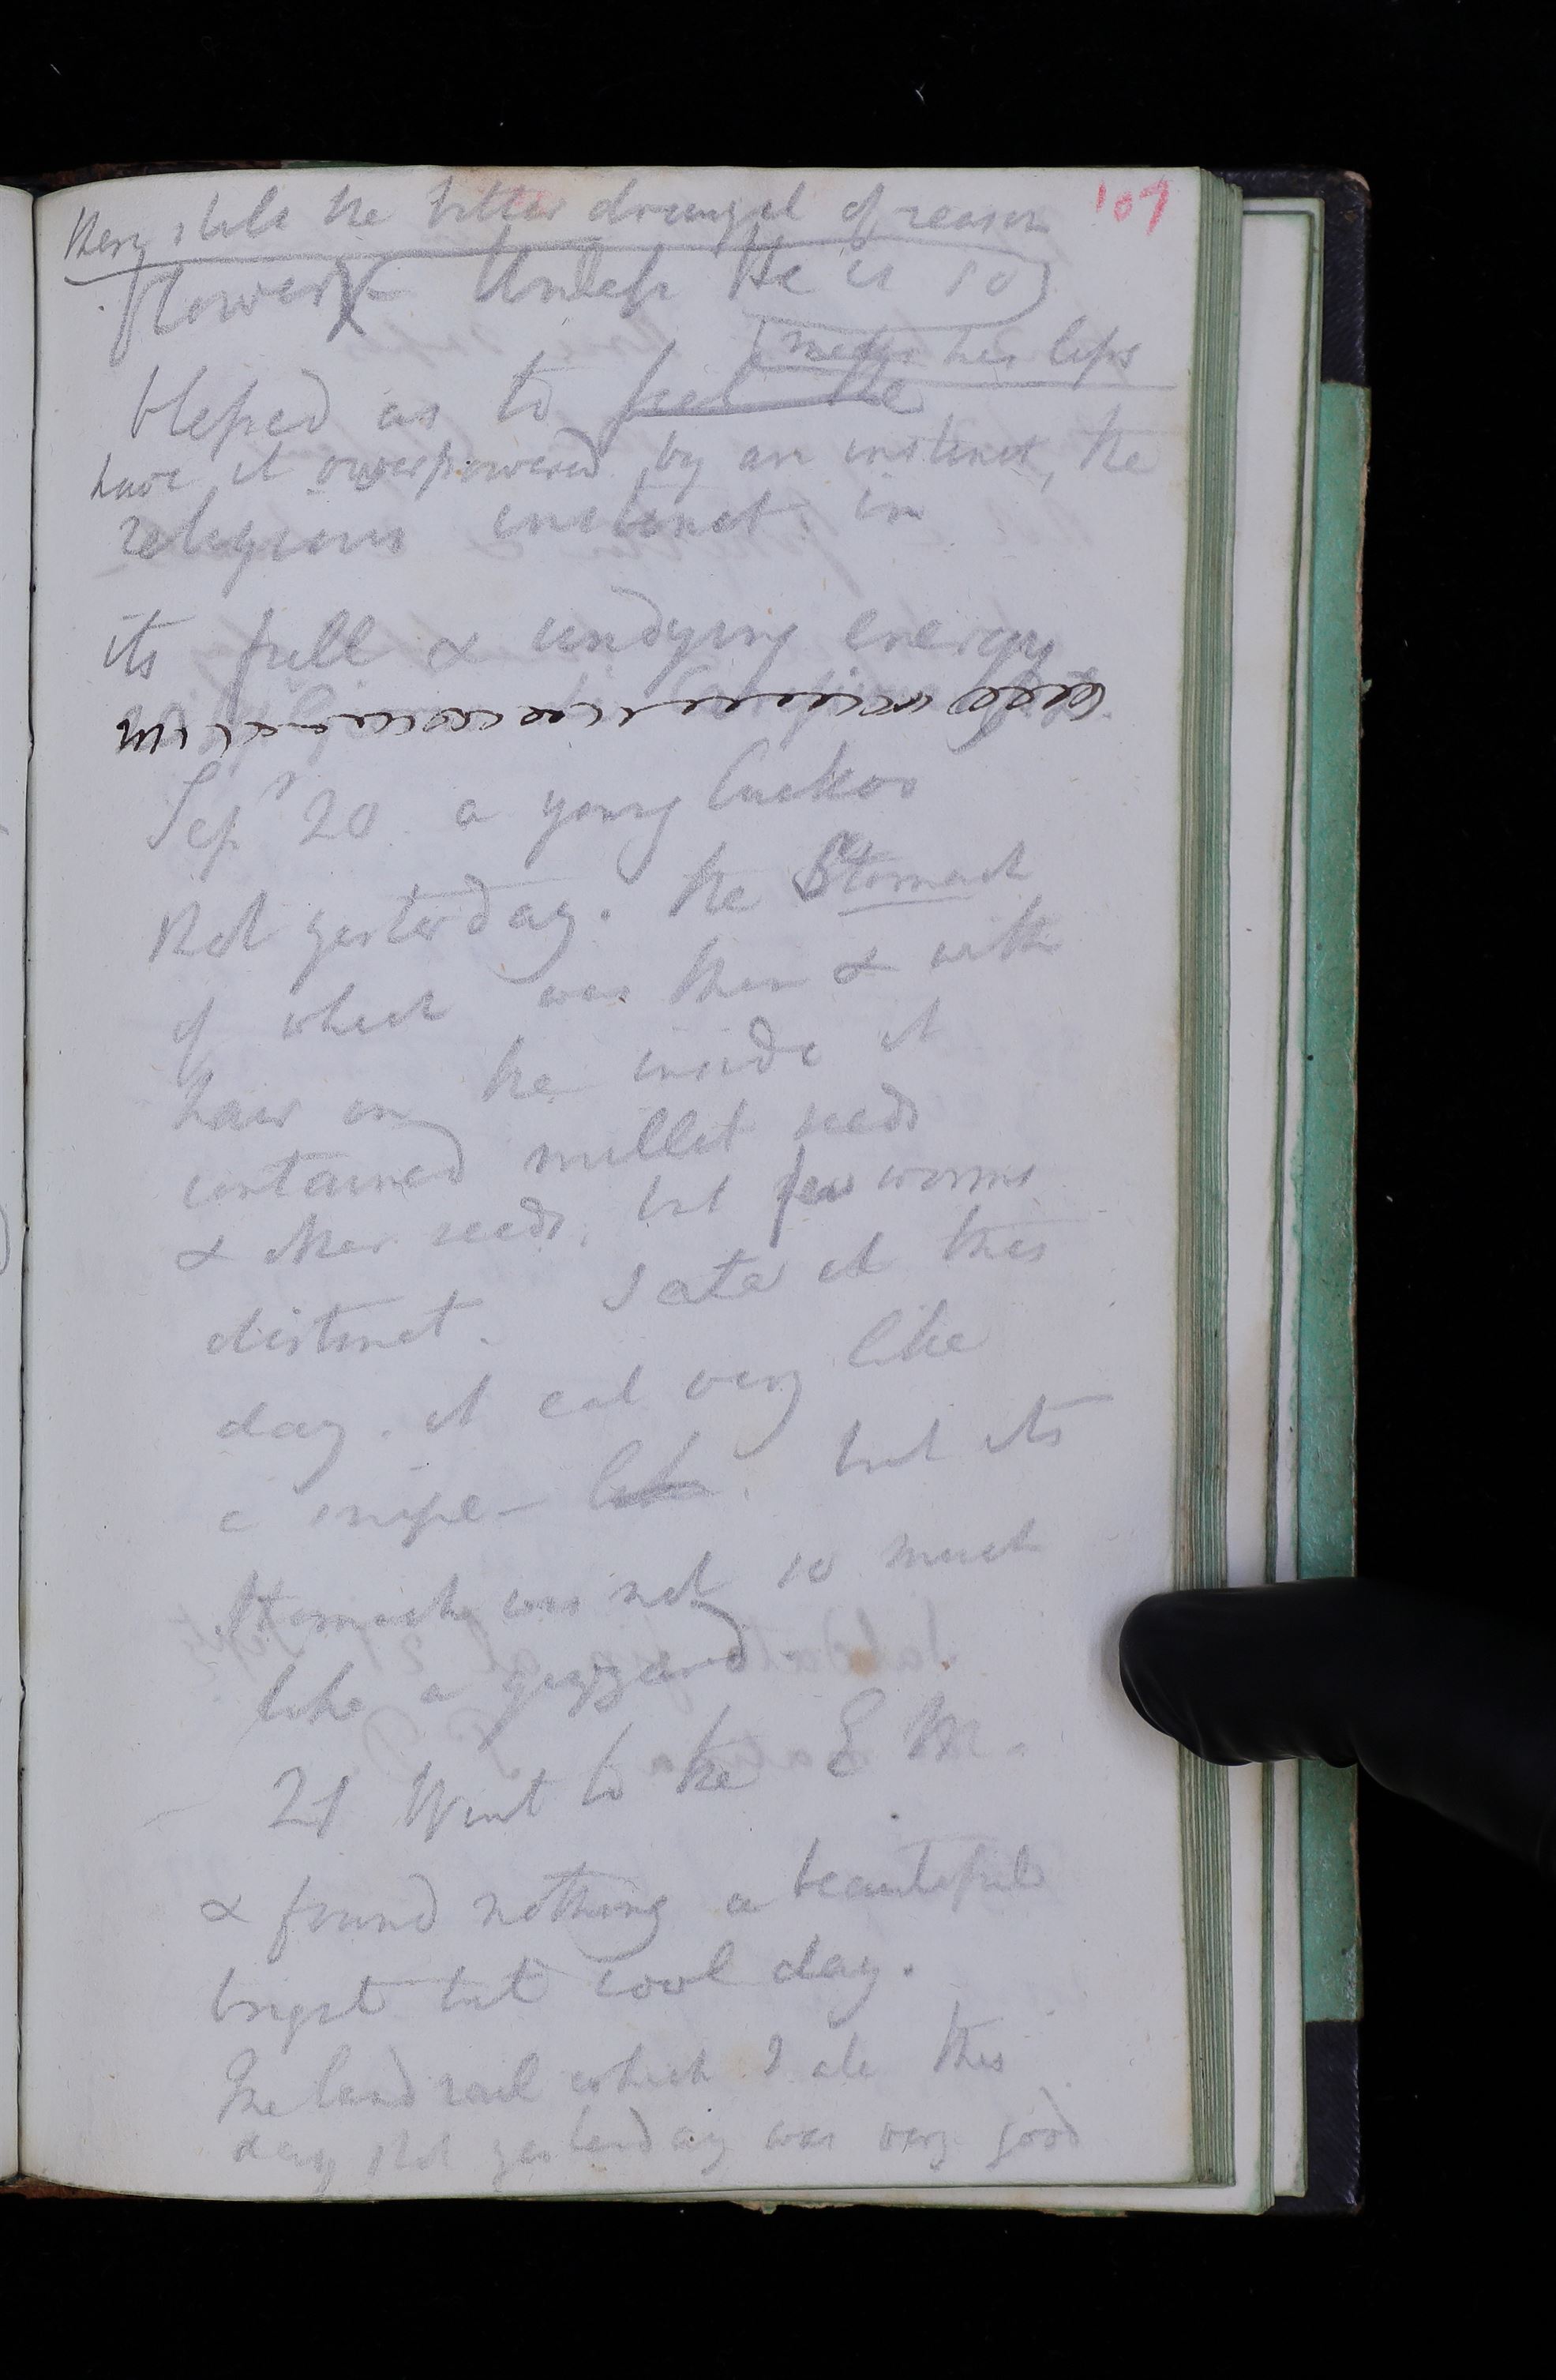 107
the bitter draught of reason
flower X - Unless He is so
near his lips
blessed as to feel the
have it overpowered by an instinct, the
religious instinct in
its full & undying energy
Sepr 20 a young Cuckoo
shot yesterday. the Stomach
of which was thin & with
hair in the inside it
contained millet seeds
& other seeds, but few worms
distinct. I ate it this
day. it eat very like
a snipe - like. but its
stomach was not so much
like a gizzard
21 Went to the E M.
& found nothing a beautiful
bright but cool day.
The land rail which I ate this
day shot yesterday was very good